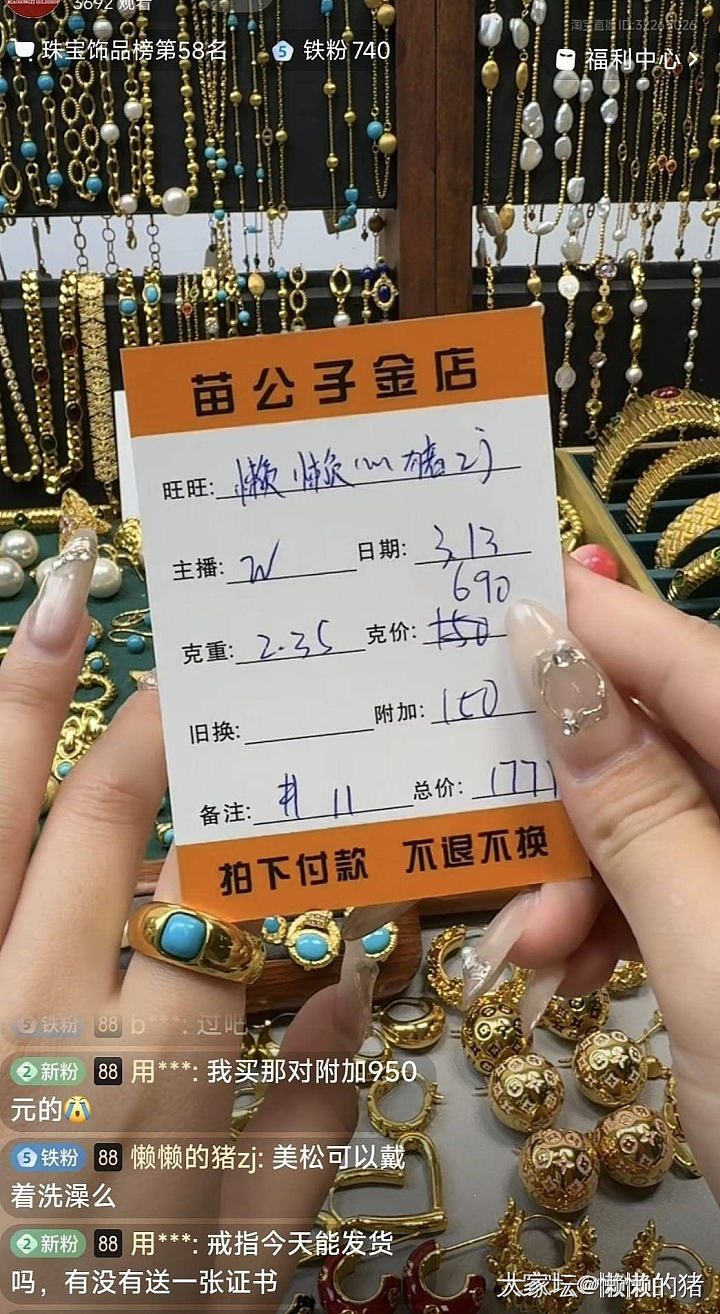 3692 观看
珠宝饰品榜第58名
5 铁粉740
福利中心
苗公子金店
旺旺: 懒懒的猪zj
主播: W
日期: 3.13
690
克重: 2.35
克价: 150
旧换:
附加: 150
备注: # 11
总价: 1771
拍下付款 不退不换
5 铁粉 88 b***: 过吧
2 新粉 88 用***: 我买那对附加950
元的😭
5 铁粉 88 懒懒的猪zj: 美松可以戴
着洗澡么
2 新粉 88 用***: 戒指今天能发货
吗，有没有送一张证书
大家坛@懒懒的猪